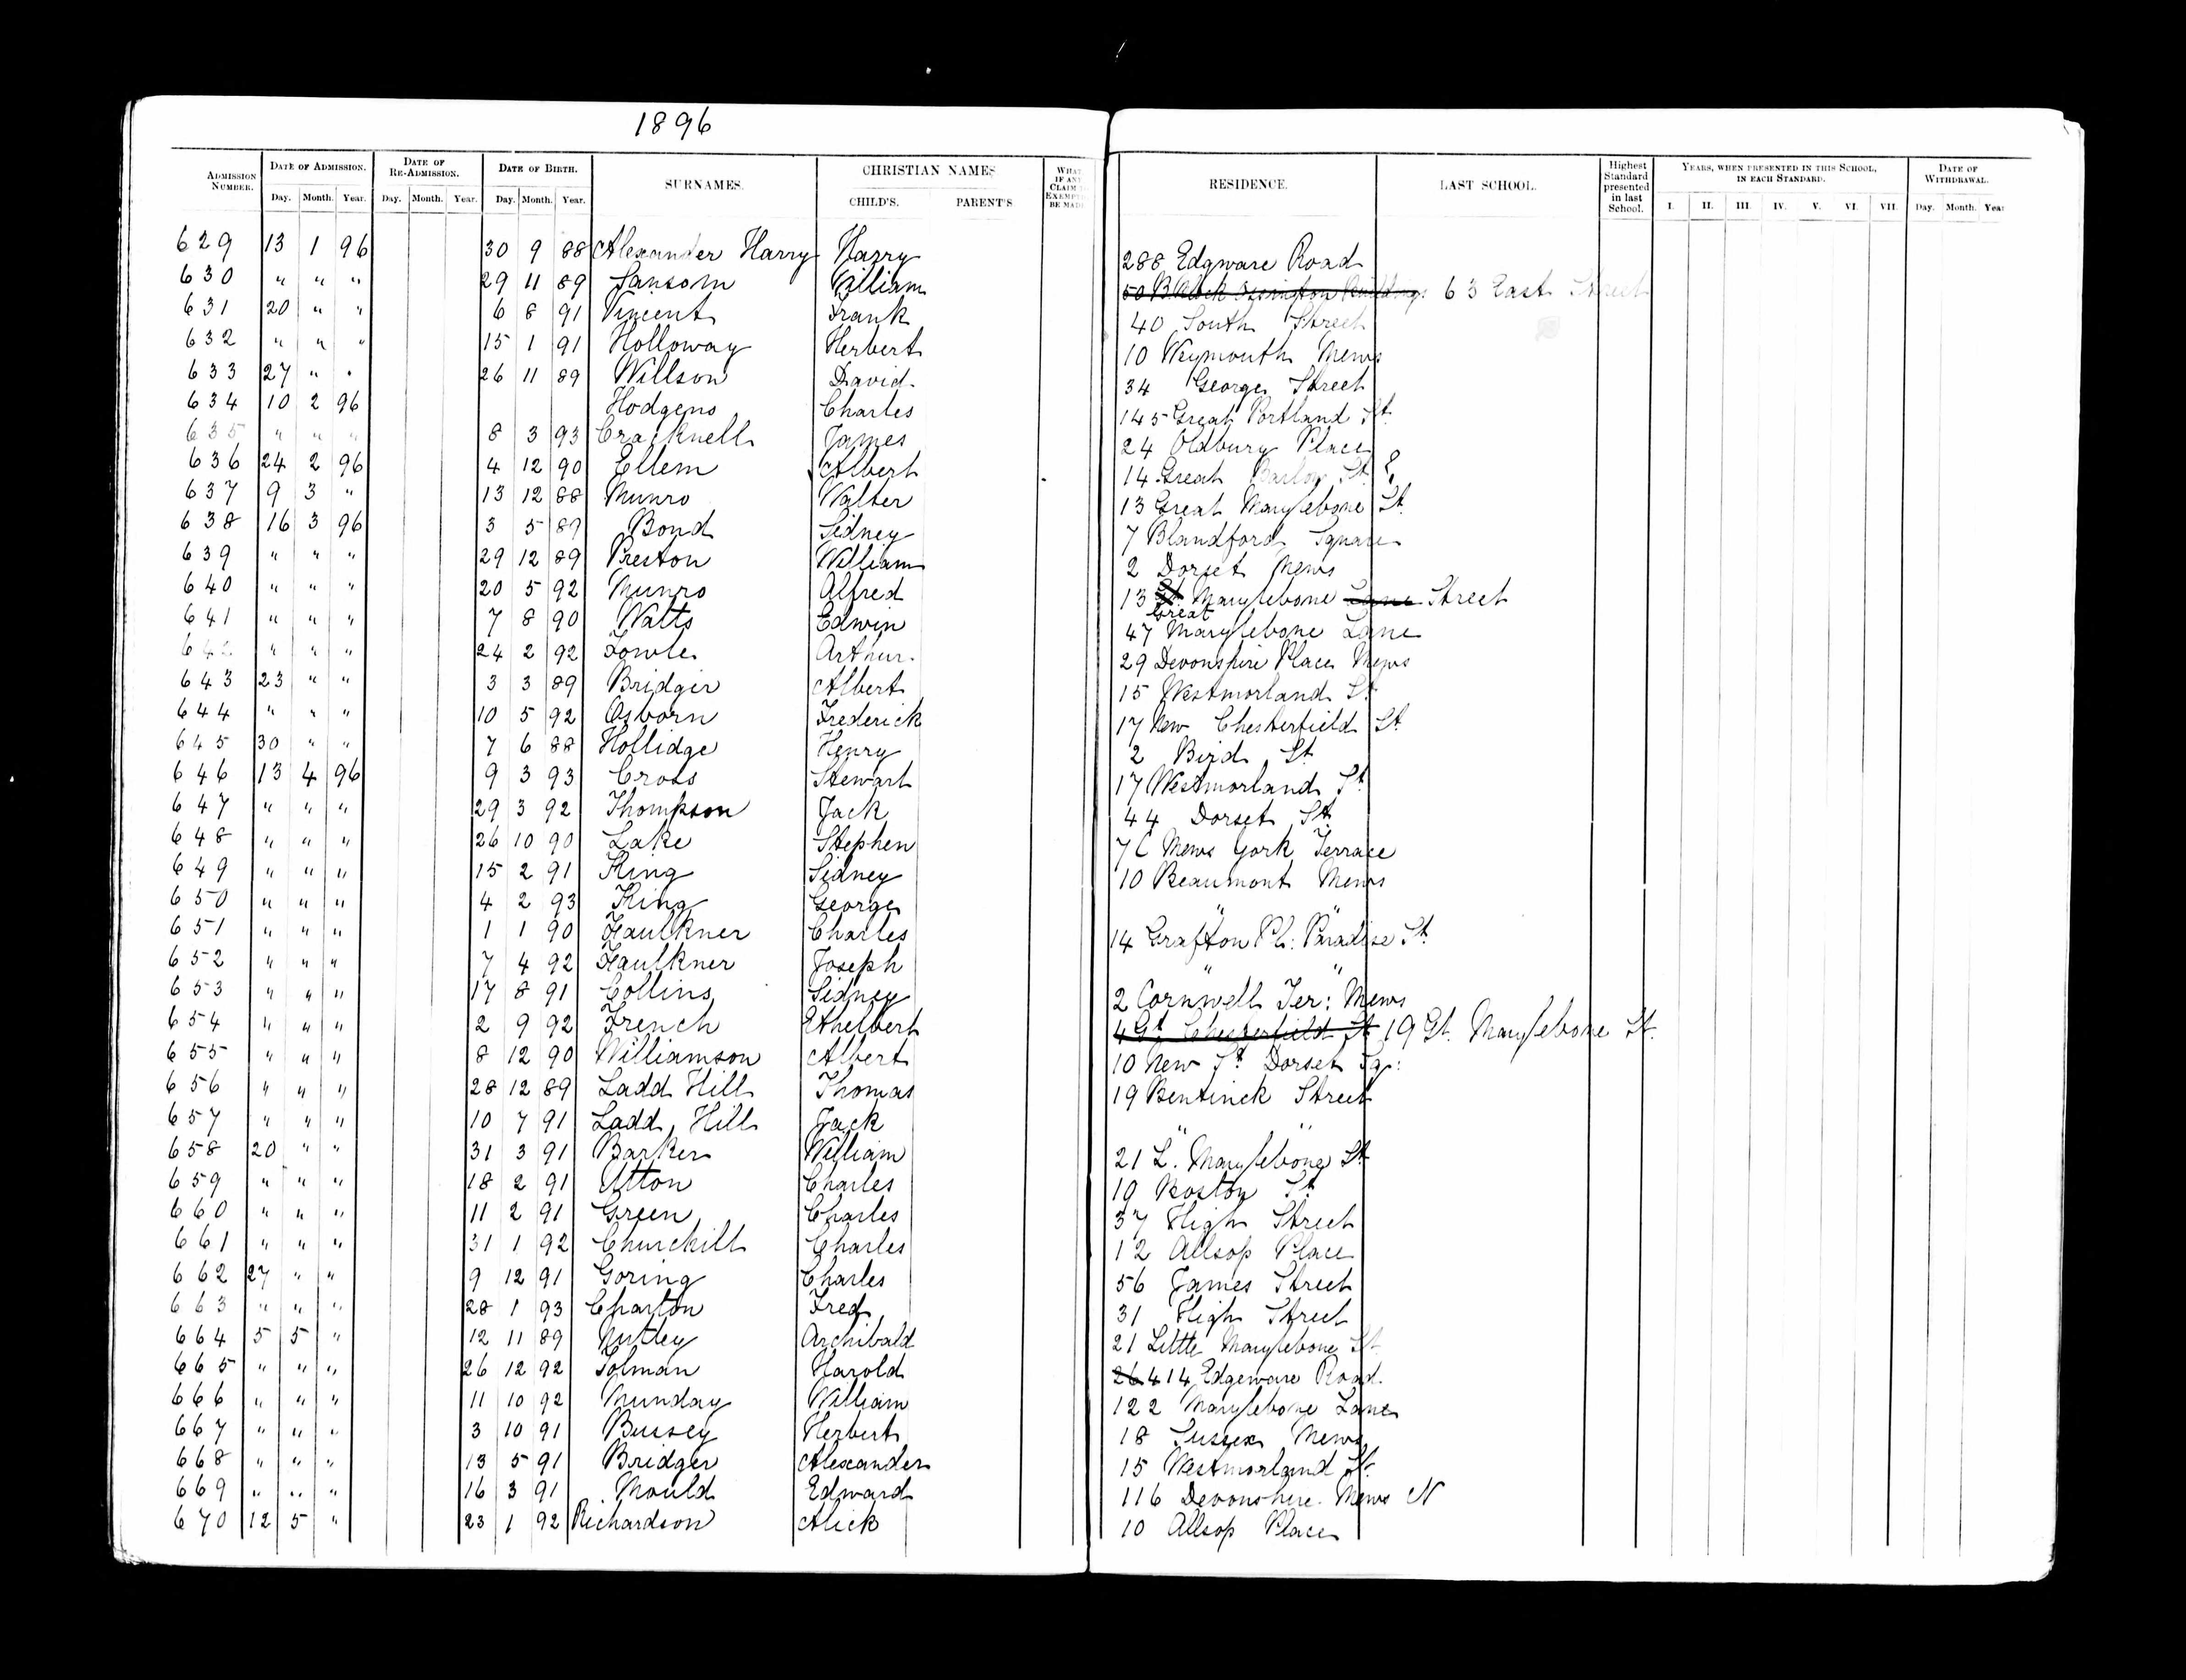 1896
ADMISSION NUMBER. DATE OF ADMISSION. DATE OF RE-ADMISSION. DATE OF BIRTH. SURNAMES. CHRISTIAN NAMES WHAT IF ANY CLAIM TO EXEMPTN BE MADE RESIDENCE. LAST SCHOOL. Highest Standard presented in last School. YEARS, WHEN PRESENTED IN THIS SCHOOL, IN EACH STANDARD. DATE OF WITHDRAWAL.
Day. Month. Year. Day. Month. Year. Day. Month. Year. CHILD'S. PARENT'S I. II. III. IV. V. VI. VII. Day. Month. Year
629 13 1 96 30 9 88 Alexander Harry Harry 288 Edgware Road
630 " " " 29 11 89 Sansom William 50 B Block Ossington Buildings 63 East Street
631 20 " " 6 8 91 Vincent Frank 40 South Street
632 " " " 15 1 91 Holloway Herbert 10 Weymouth Mews
633 27 " " 26 11 89 Willson David. 34 George Street
634 10 2 96 Hodgens Charles 145 Great Portland St.
635 " " " 8 3 93 Cracknell James 24 Oldbury Place
636 24 2 96 4 12 90 Ellem Albert 14 Great Barlow St.
637 9 3 " 13 12 88 Munro Walter 13 Great Marylebone St.
638 16 3 96 3 5 89 Bond Sidney 7 Blandford Square
639 " " " 29 12 89 Preston William 2 Dorset Mews
640 " " " 20 5 92 Munro Alfred 13 St. Great Marylebone Lane Street
641 " " " 7 8 90 Watts Edwin 47 Marylebone Lane
642 " " " 24 2 92 Fowle Arthur. 29 Devonshire Place Mews
643 23 " " 3 3 89 Bridger Albert 15 Westmorland St.
644 " " " 10 5 92 Osborn Frederick 17 New Chesterfield St.
645 30 " " 7 6 88 Hollidge Henry 2 Bird St.
646 13 4 96 9 3 93 Cross Stewart 17 Westmorland St.
647 " " " 29 3 92 Thompson Jack 44 Dorset St.
648 " " " 26 10 90 Lake Stephen 7 C Mews York Terrace
649 " " " 15 2 91 King Sidney 10 Beaumont Mews
650 " " " 4 2 93 King George " "
651 " " " 1 1 90 Faulkner Charles 14 Grafton Pl: Paradise St.
652 " " " 7 4 92 Faulkner Joseph " "
653 " " " 17 8 91 Collins Sidney 2 Cornwell Ter: Mews
654 " " " 2 9 92 French Ethelbert 4 Gt. Chesterfield St 19 Gt. Marylebone St.
655 " " " 8 12 90 Williamson Albert 10 New St. Dorset Sq:
656 " " " 28 12 89 Ladd Hill Thomas 19 Bentinck Street
657 " " " 10 7 91 Ladd Hill Jack " "
658 20 " " 31 3 91 Barker William 21 L. Marylebone St.
659 " " " 18 2 91 Utton Charles 19 Boston St.
660 " " " 11 2 91 Green Charles 37 High Street
661 " " " 31 1 92 Churchill Charles 12 Allsop Place
662 27 " " 9 12 91 Goring Charles 56 James Street
663 " " " 28 1 93 Charlton Fred 31 High Street
664 5 5 " 12 11 89 Nutley Archibald 21 Little Marylebone St.
665 " " " 26 12 92 Tolman Harold 26 414 Edgeware Road.
666 " " " 11 10 92 Munday William 122 Marylebone Lane
667 " " " 3 10 91 Bussey Herbert 18 Sussex Mews
668 " " " 13 5 91 Bridger Alexander 15 Westmorland St.
669 " " " 16 3 91 Mould Edward 116 Devonshire. Mews N
670 12 5 " 23 1 92 Richardson Alick 10 Allsop Place